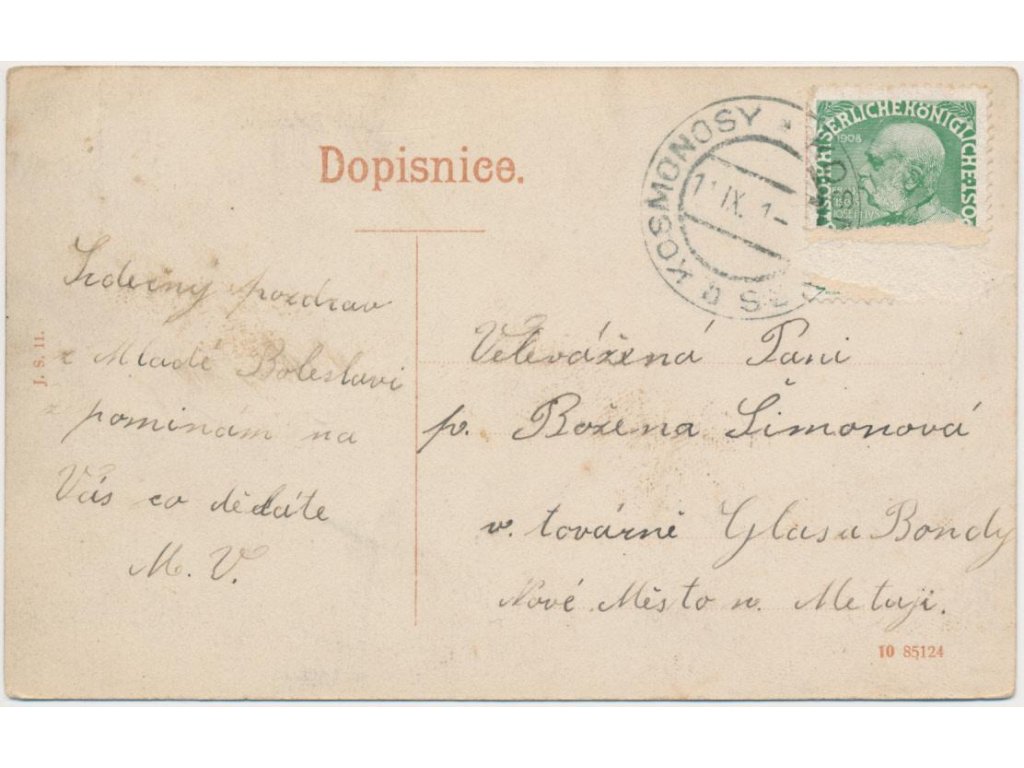 Dopisnice.
KOSMONOSY *
11 IX. 1-
KAISERLICHE KÖNIGLICHE ÖST
1908
Srdečný pozdrav
z Mladé Boleslavi
pominám na
Vás co děláte
M. V.
Velevážená Paní
p. Božena Šimonová
v. továrně Glas a Bondy
Nové Město n. Metují.
J. S. 11.
10 85124